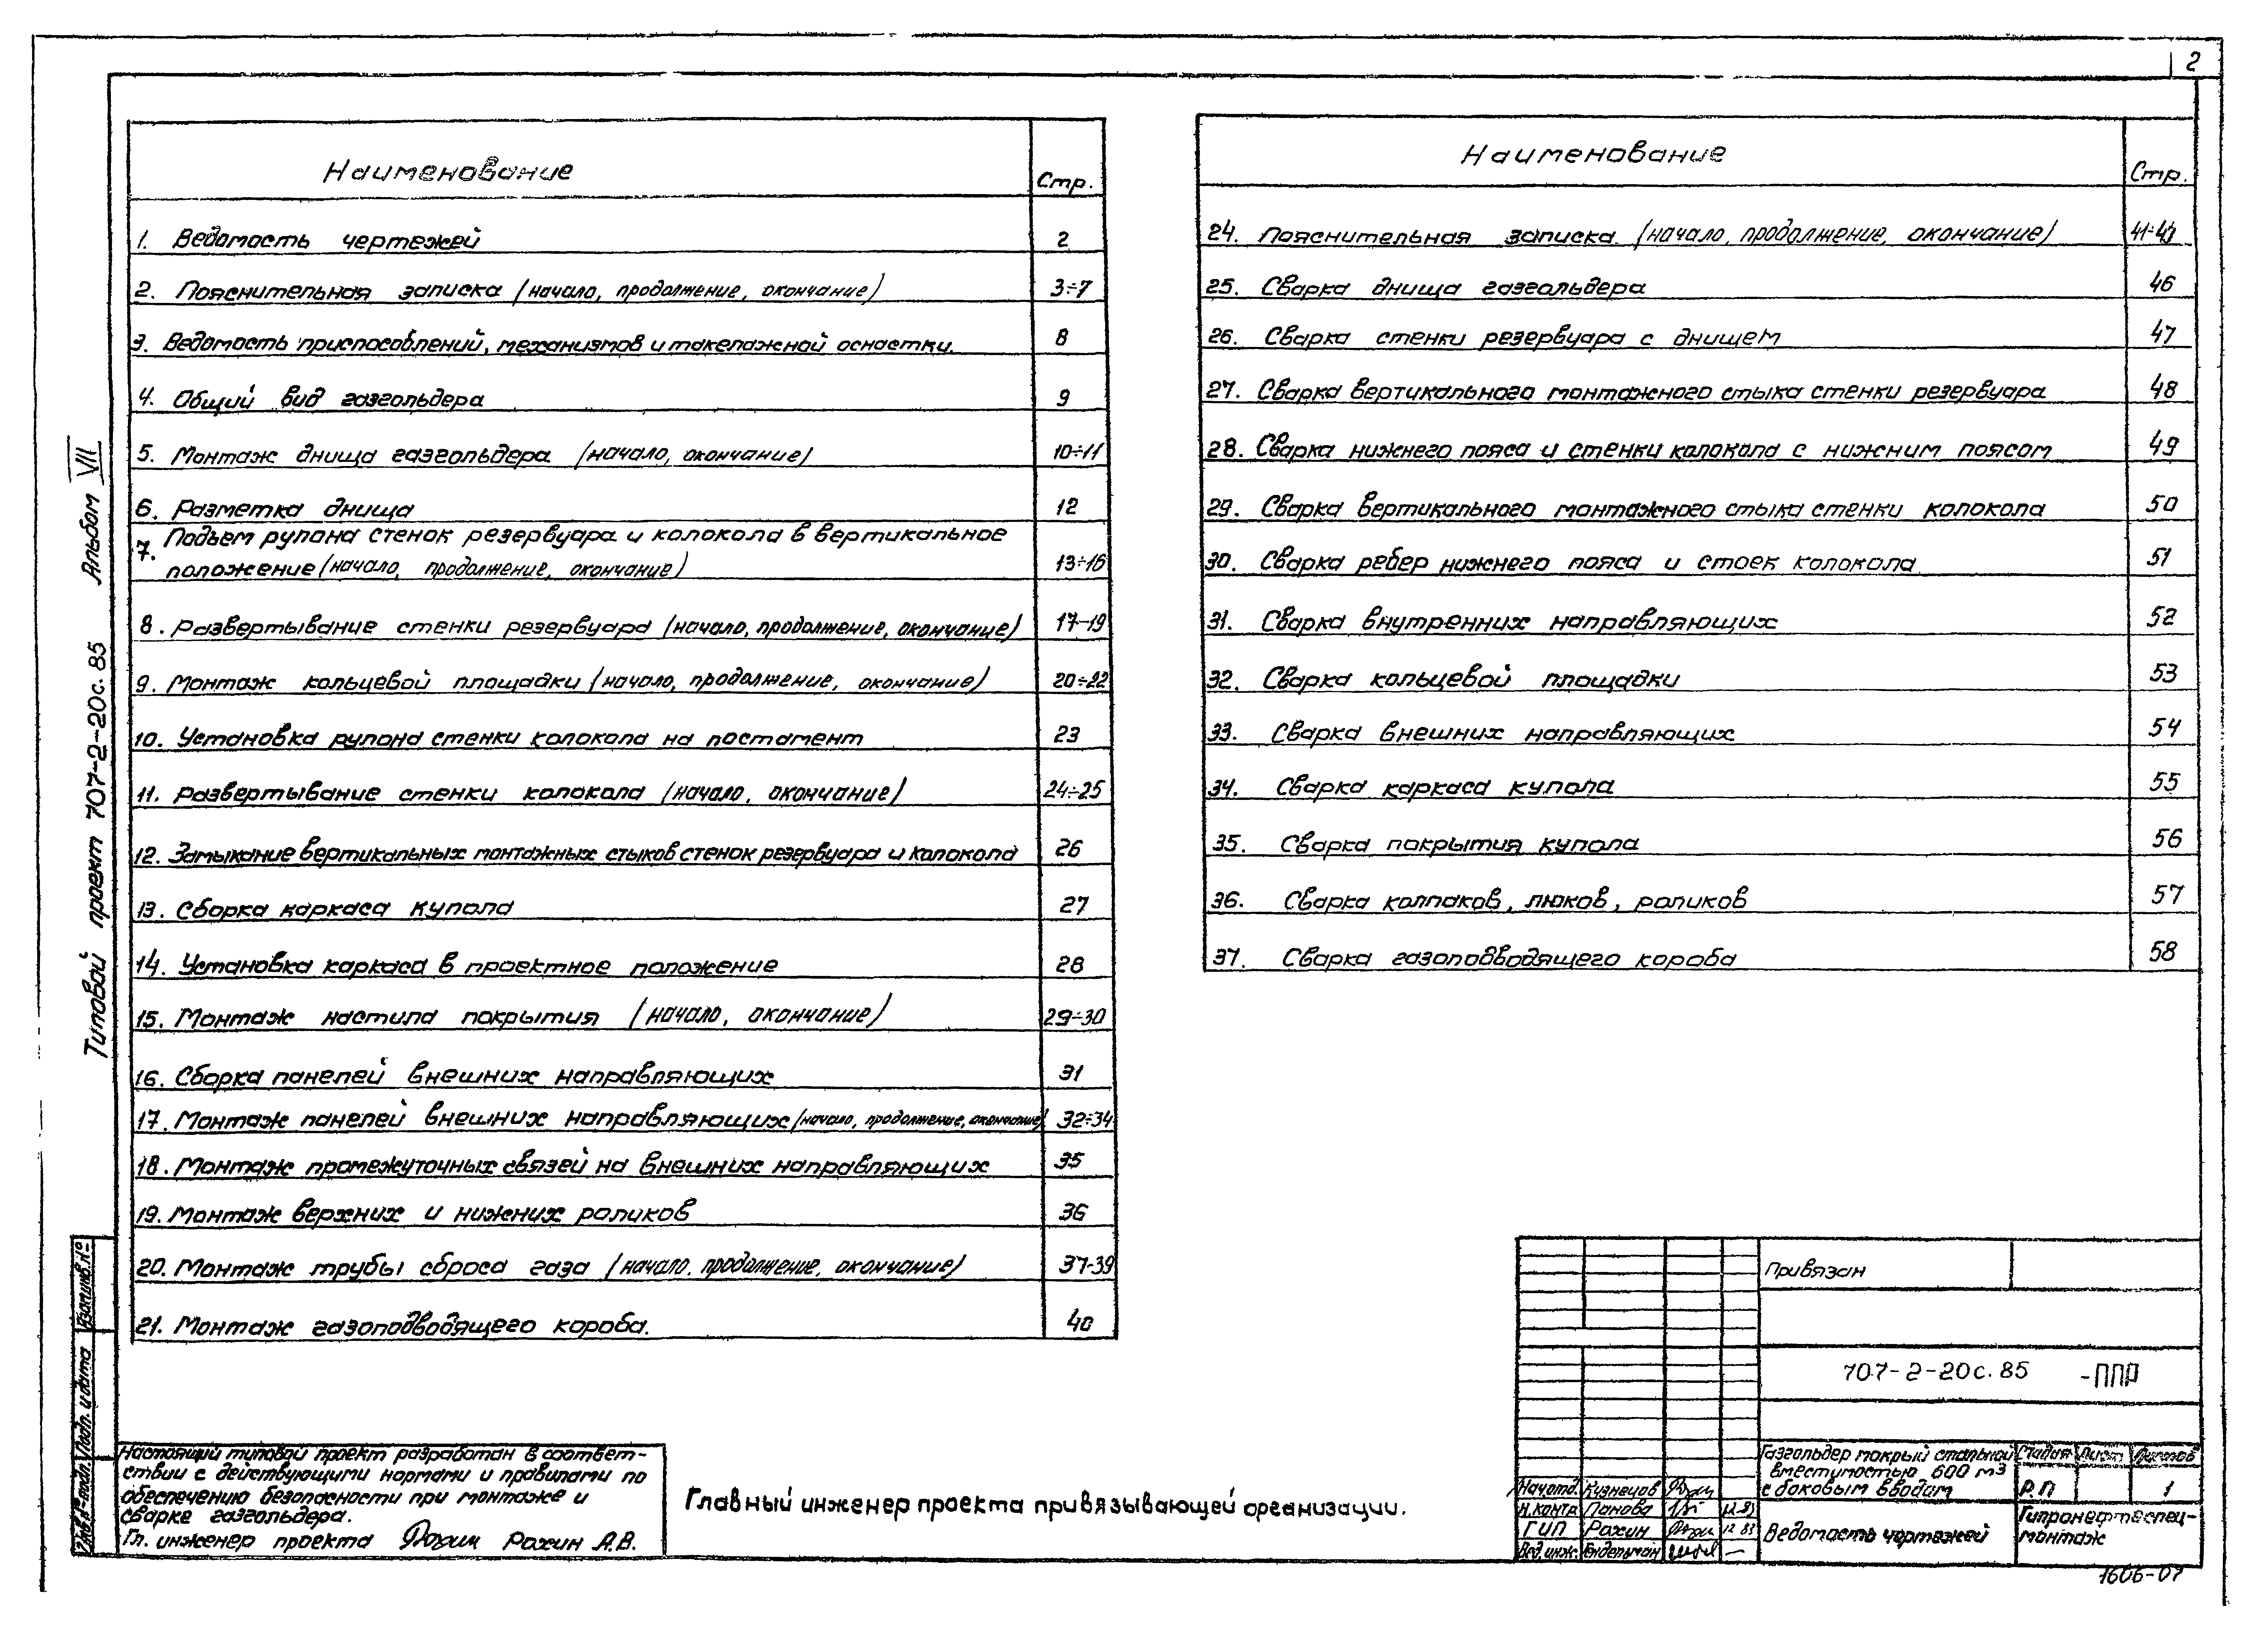 2
Наименование Стр.
1. Ведомость чертежей 2
2. Пояснительная записка (начало, продолжение, окончание) 3÷7
3. Ведомость приспособлений, механизмов и такелажной оснастки. 8
4. Общий вид газгольдера 9
5. Монтаж днища газгольдера (начало, окончание) 10÷11
6. Разметка днища 12
7. Подъем рулона стенок резервуара и колокола в вертикальное
положение (начало, продолжение, окончание) 13÷16
8. Развертывание стенки резервуара (начало, продолжение, окончание) 17-19
9. Монтаж кольцевой площадки (начало, продолжение, окончание) 20÷22
10. Установка рулона стенки колокола на постамент 23
11. Развертывание стенки колокола (начало, окончание) 24÷25
12. Замыкание вертикальных монтажных стыков стенок резервуара и колокола 26
13. Сборка каркаса купола 27
14. Установка каркаса в проектное положение 28
15. Монтаж настила покрытия (начало, окончание) 29÷30
16. Сборка панелей внешних направляющих 31
17. Монтаж панелей внешних направляющих (начало, продолжение, окончание) 32÷34
18. Монтаж промежуточных связей на внешних направляющих 35
19. Монтаж верхних и нижних роликов 36
20. Монтаж трубы сброса газа (начало, продолжение, окончание) 37-39
21. Монтаж газоподводящего короба. 40
Наименование Стр.
24. Пояснительная записка (начало, продолжение, окончание)
25. Сварка днища газгольдера 46
26. Сварка стенки резервуара с днищем 47
27. Сварка вертикального монтажного стыка стенки резервуара 48
28. Сварка нижнего пояса и стенки колокола с нижним поясом 49
29. Сварка вертикального монтажного стыка стенки колокола 50
30. Сварка ребер нижнего пояса и стоек колокола 51
31. Сварка внутренних направляющих 52
32. Сварка кольцевой площадки 53
33. Сварка внешних направляющих 54
34. Сварка каркаса купола 55
35. Сварка покрытия купола 56
36. Сварка колпаков, люков, роликов 57
37. Сварка газоподводящего короба 58
Типовой проект 707-2-20с.85 Альбом VII
Взам.инв.№
Подп. и дата
Инв.№ подл.
Настоящий типовой проект разработан в соответ-
ствии с действующими нормами и правилами по
обеспечению безопасности при монтаже и
сварке газгольдера.
Гл. инженер проекта Рахин А.В.
Главный инженер проекта привязывающей организации.
Привязан
707-2-20с.85 -ППР
Газгольдер мокрый стальной
вместимостью 600 м3
с боковым вводом
Стадия Лист Листов
Р.П 1
Нач.отд. Кузнецов
Н.контр. Панова 12.83
ГИП Рахин 12 83
Вед.инж.
Ведомость чертежей
Гипронефтеспец-
монтаж
1606-07